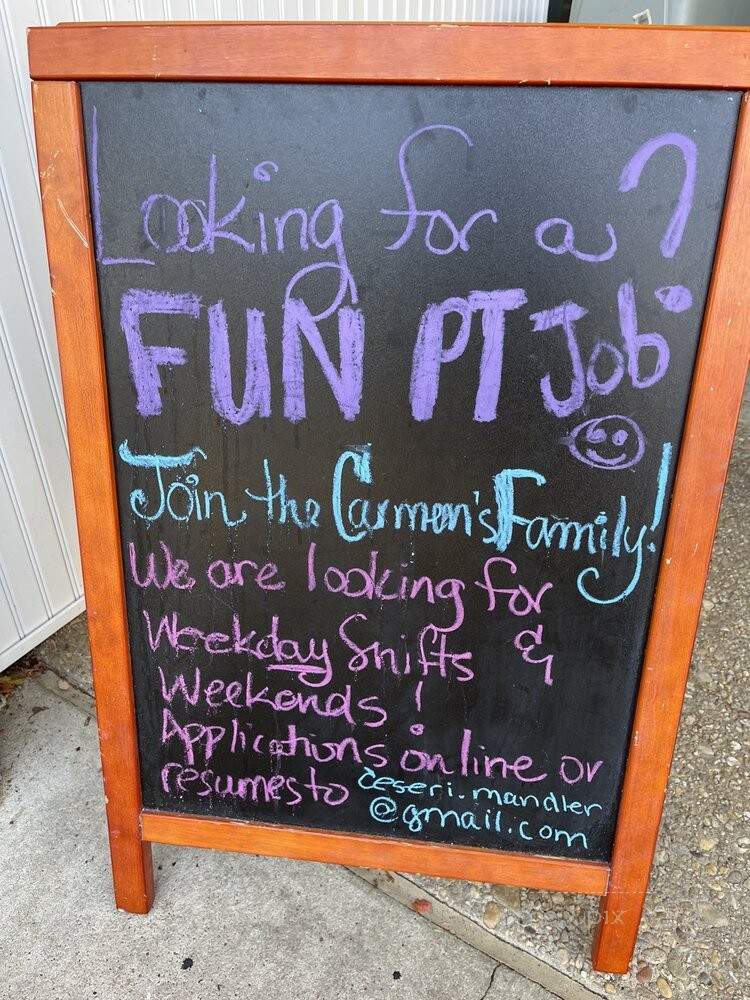 Looking for a?
FUN PT Job
Join the Carmen's Family!
We are looking for
Weekday Shifts &
Weekends!
Applications online or
resumes to deseri.mandler
@gmail.com